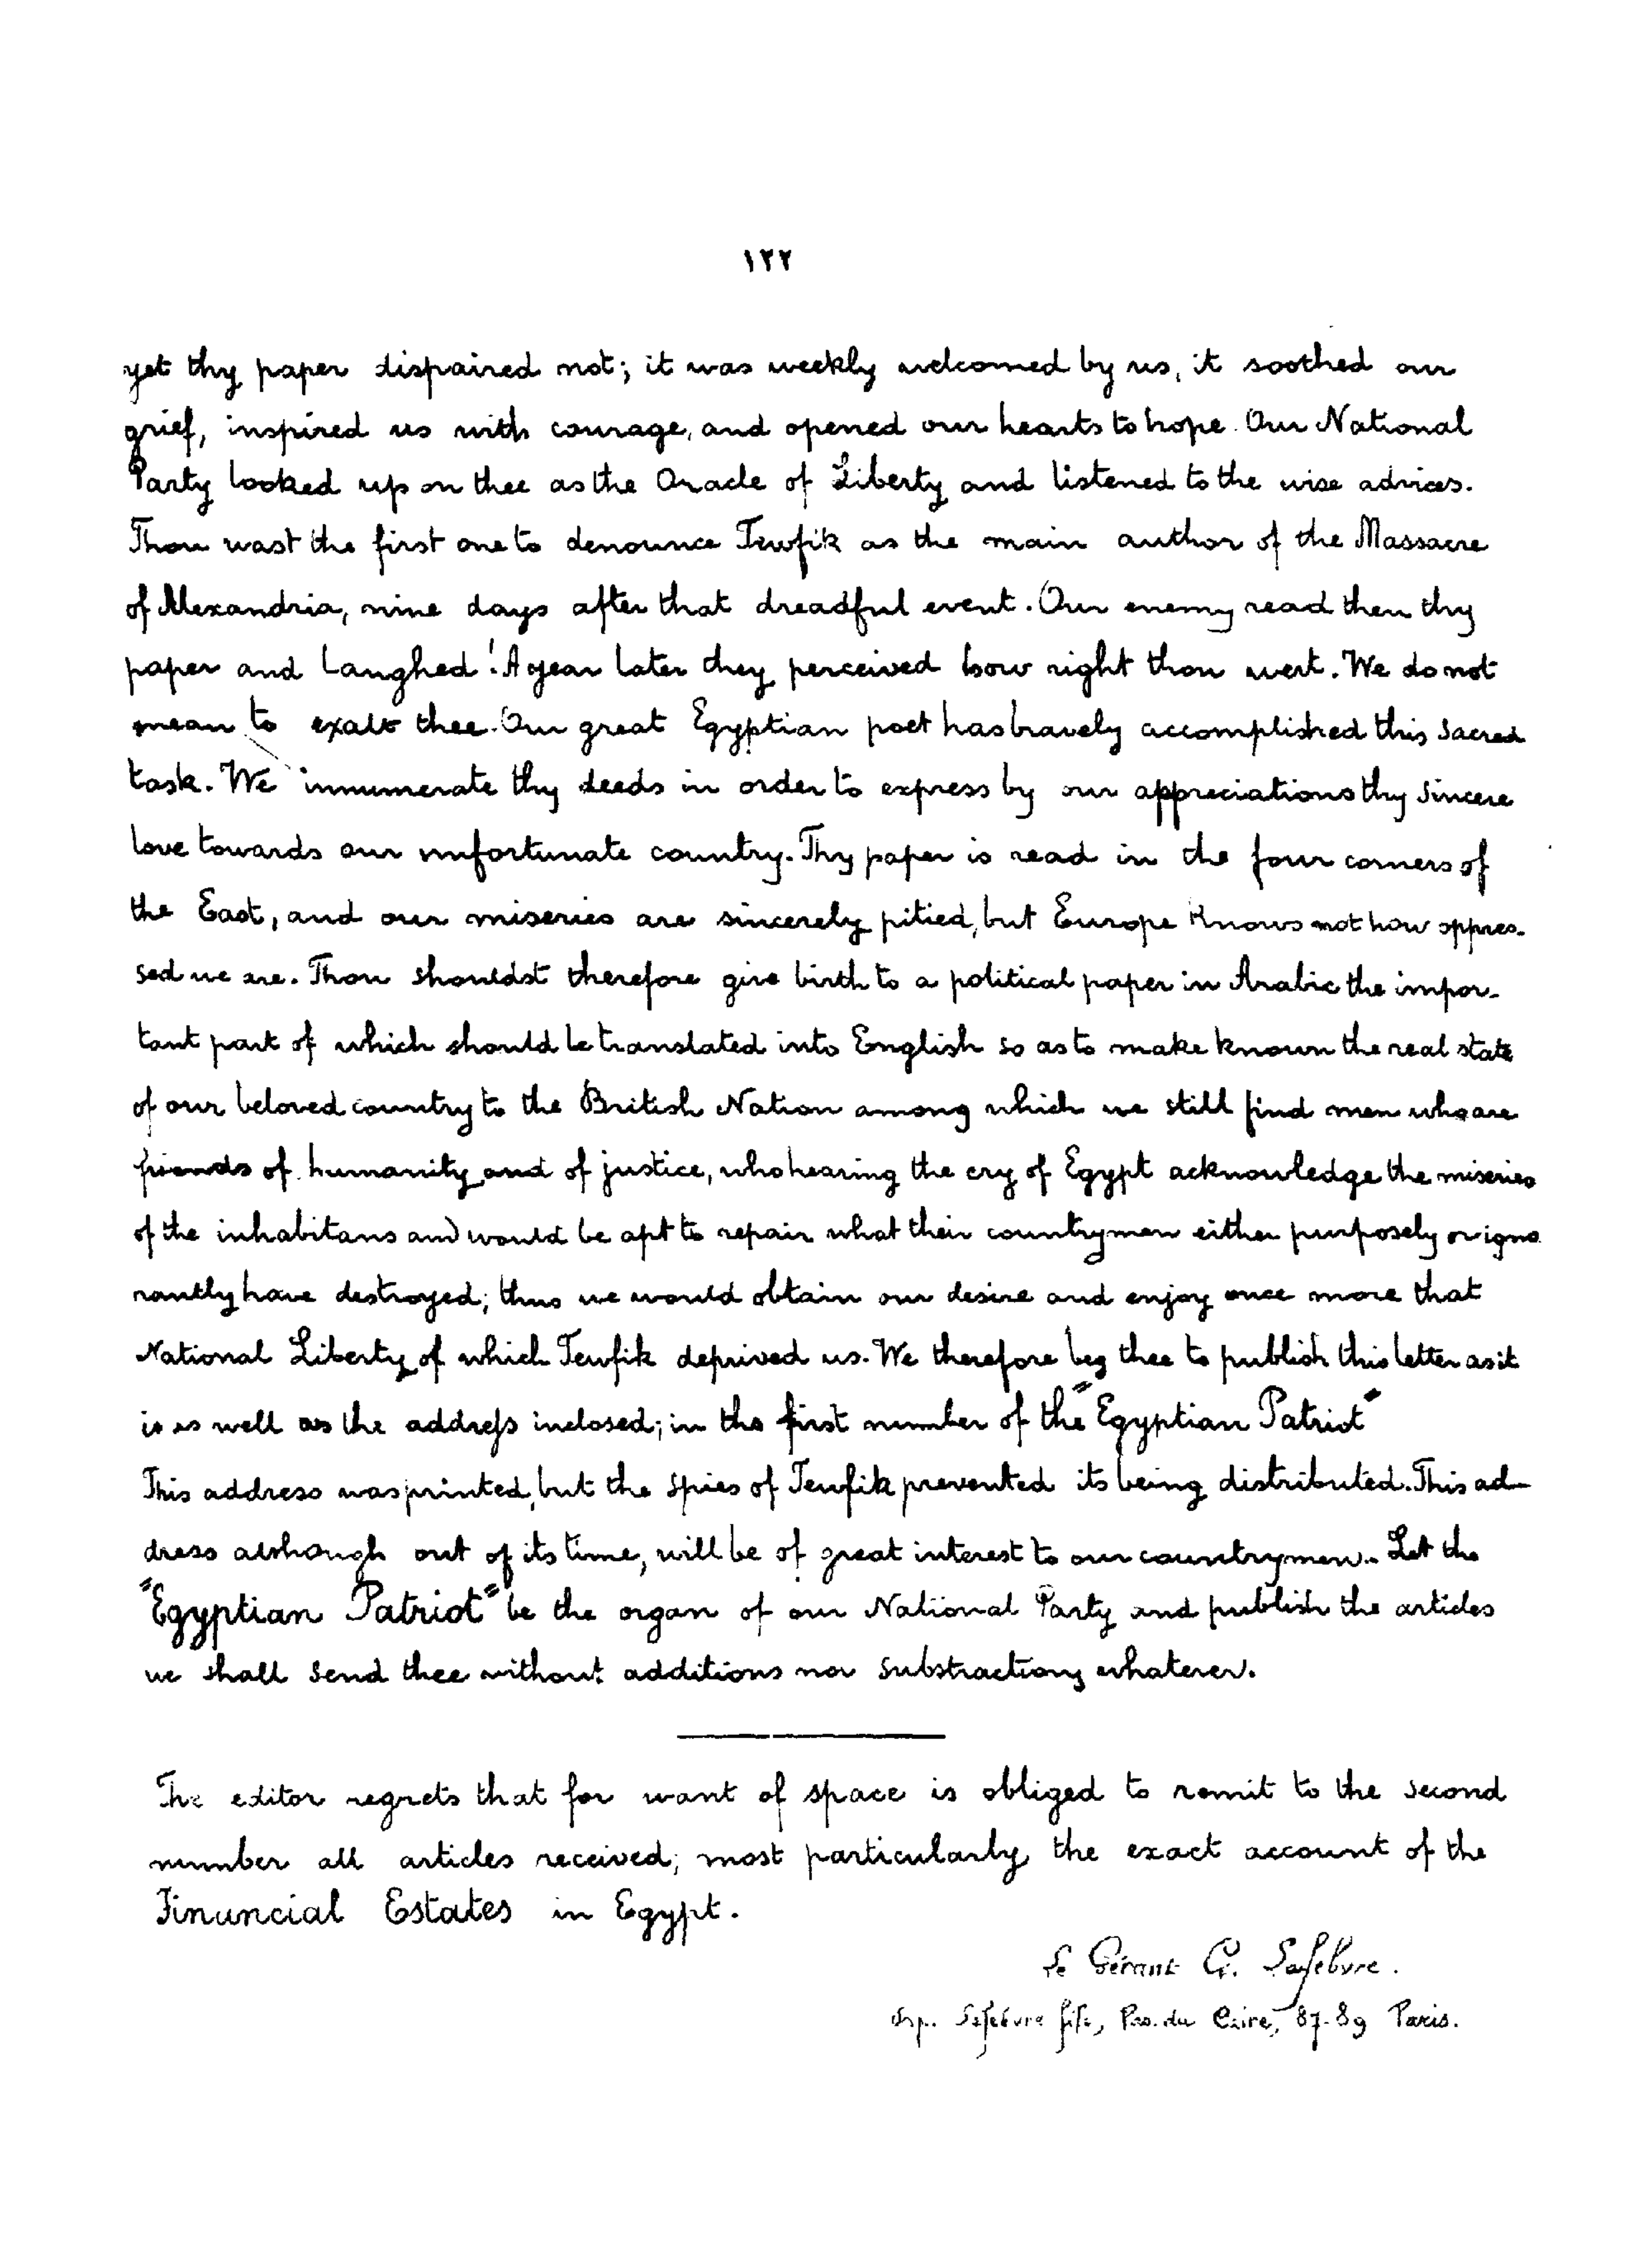 ١٢٢
yet thy paper dispaired not; it was weekly welcomed by us, it soothed our
grief, inspired us with courage, and opened our hearts to hope. Our National
Party looked up on thee as the Oracle of Liberty and listened to the wise advices.
Thou wast the first one to denounce Tewfik as the main author of the Massacre
of Alexandria, nine days after that dreadful event. Our enemy read then thy
paper and Laughed! A year later they perceived how right thou wert. We do not
mean to exalt thee. Our great Egyptian poet has bravely accomplished this sacred
task. We innumerate thy deeds in order to express by our appreciations thy sincere
love towards our unfortunate country. Thy paper is read in the four corners of
the East, and our miseries are sincerely pitied, but Europe Knows not how oppres-
sed we are. Thou shouldst therefore give birth to a political paper in Arabic the impor-
tant part of which should be translated into English so as to make known the real state
of our beloved country to the British Nation among which we still find men who are
friends of humanity and of justice, who hearing the cry of Egypt acknowledge the miseries
of the inhabitans and would be apt to repair what their countrymen either purposely or igno
rantly have destroyed; thus we would obtain our desire and enjoy once more that
National Liberty of which Tewfik deprived us. We therefore beg thee to publish this letter as it
is as well as the address inclosed; in the first number of the "Egyptian Patriot"
This address was printed, but the spies of Tewfik prevented its being distributed. This ad-
dress although out of its time, will be of great interest to our countrymen. Let the
"Egyptian Patriot" be the organ of our National Party and publish the articles
we shall send thee without additions nor substractions whatever.
The editor regrets that for want of space is obliged to remit to the second
number all articles received; most particularly the exact account of the
Finuncial Estates in Egypt.
Le Gérant G. Lefebvre.
Imp. Lefebvre fils, Pas. du Caire, 87-89 Paris.